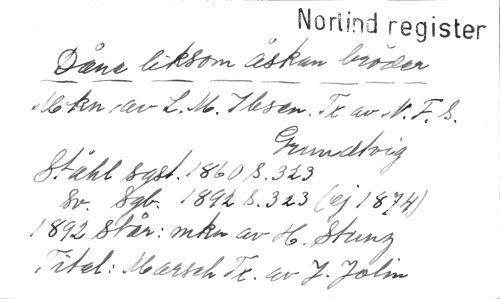 Norlind register
Dåna liksom åskan bröder
Mkn. av L. M. Ibsen. Tx av N. F. S.
Grundtvig
Ståhl sgst. 1860 s. 323
Sv. Sgb. 1892 s. 323 (ej 1874)
1892 står: mkn av H. Stunz
Titel: Marsch Tx. av J. Jolin